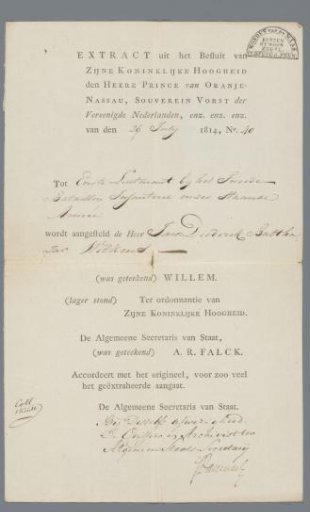 EXTRACT uit het Besluit van
ZIJNE KONINKLIJKE HOOGHEID
den HEERE PRINCE van ORANJE-
NASSAU, SOUVEREIN VORST der
Vereenigde Nederlanden, enz. enz. enz.
van den 26 July 1814, No. 40
Tot Eerste Luitenant by het Tweede
Bataillon Infanterie onzer Staande
Armee
wordt aangesteld de Heer Jan Diederik
(was geteekend) WILLEM.
(lager stond) Ter ordonnantie van
ZIJNE KONINKLIJKE HOOGHEID.
De Algemeene Secretaris van Staat,
(was geteekend) A. R. FALCK.
Accordeert met het origineel, voor zoo veel
het geëxtraheerde aangaat.
De Algemeene Secretaris van Staat.
Bij Deszelfs afwezigheid
Coll